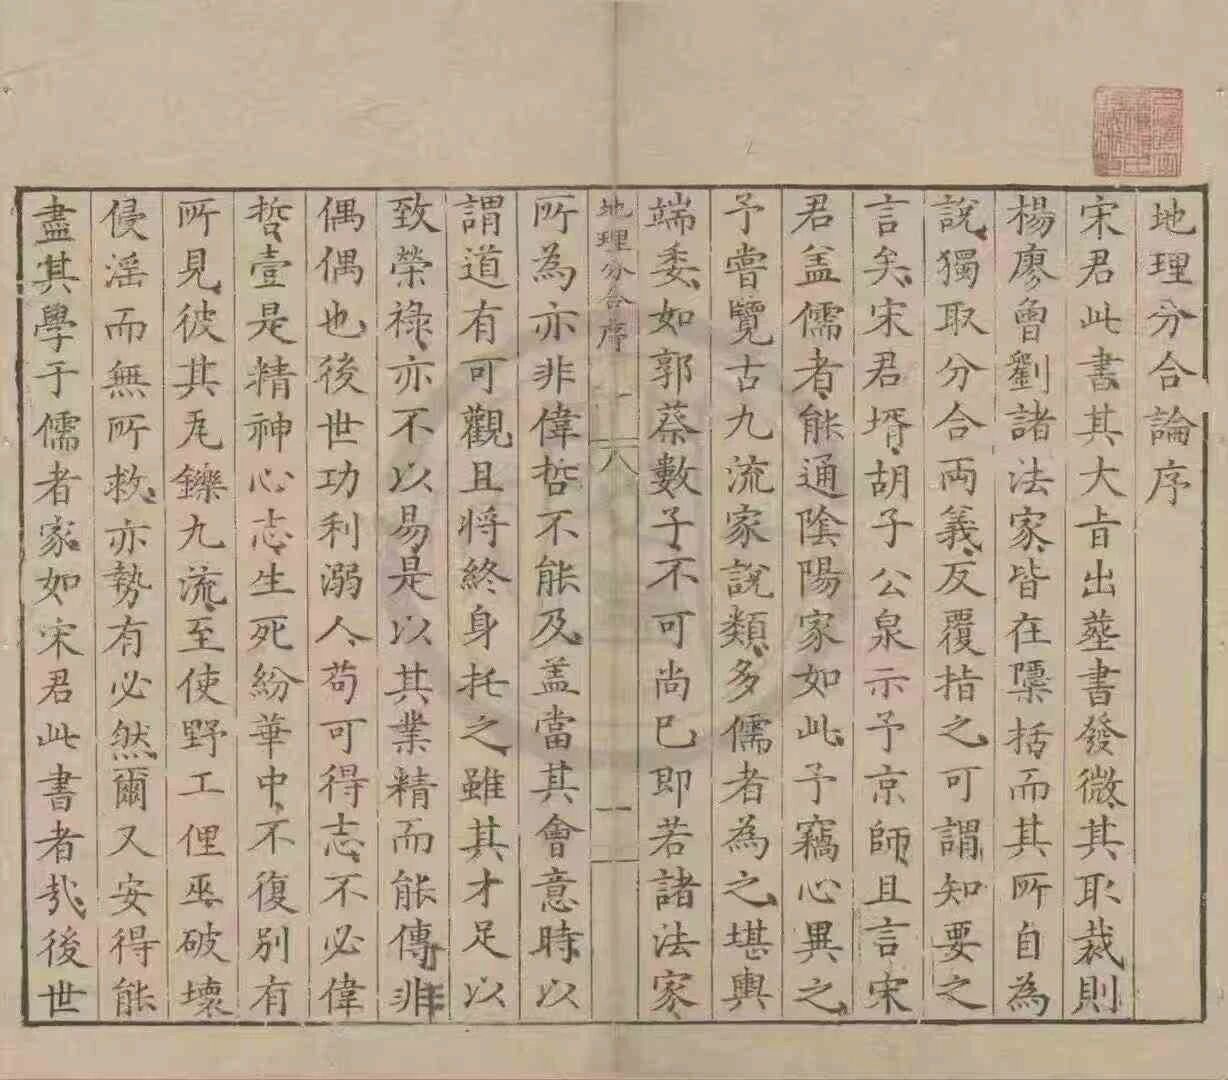 地理分合論序
宋君此書其大㫖出塟書發微其取裁則
楊廖曾劉諸法家皆在檃括而其所自為
說獨取分合両義反覆指之可謂知要之
言矣宋君壻胡子公泉示予京師且言宋
君盖儒者能通陰陽家如此予竊心異之
予嘗覽古九流家說類多儒者為之堪輿
端委如郭蔡數子不可尚已即若諸法家
地理分合序
一
所為亦非偉哲不能及盖當其會意時以
謂道有可觀且將終身托之雖其才足以
致榮祿亦不以易是以其業精而能傳非
偶偶也後世功利溺人苟可得志不必偉
哲壹是精神心志生死紛華中不復別有
所見彼其凥鑠九流至使野工俚巫破壞
侵滛而無所救亦勢有必然爾又安得能
盡其學于儒者家如宋君此書者㢤後世